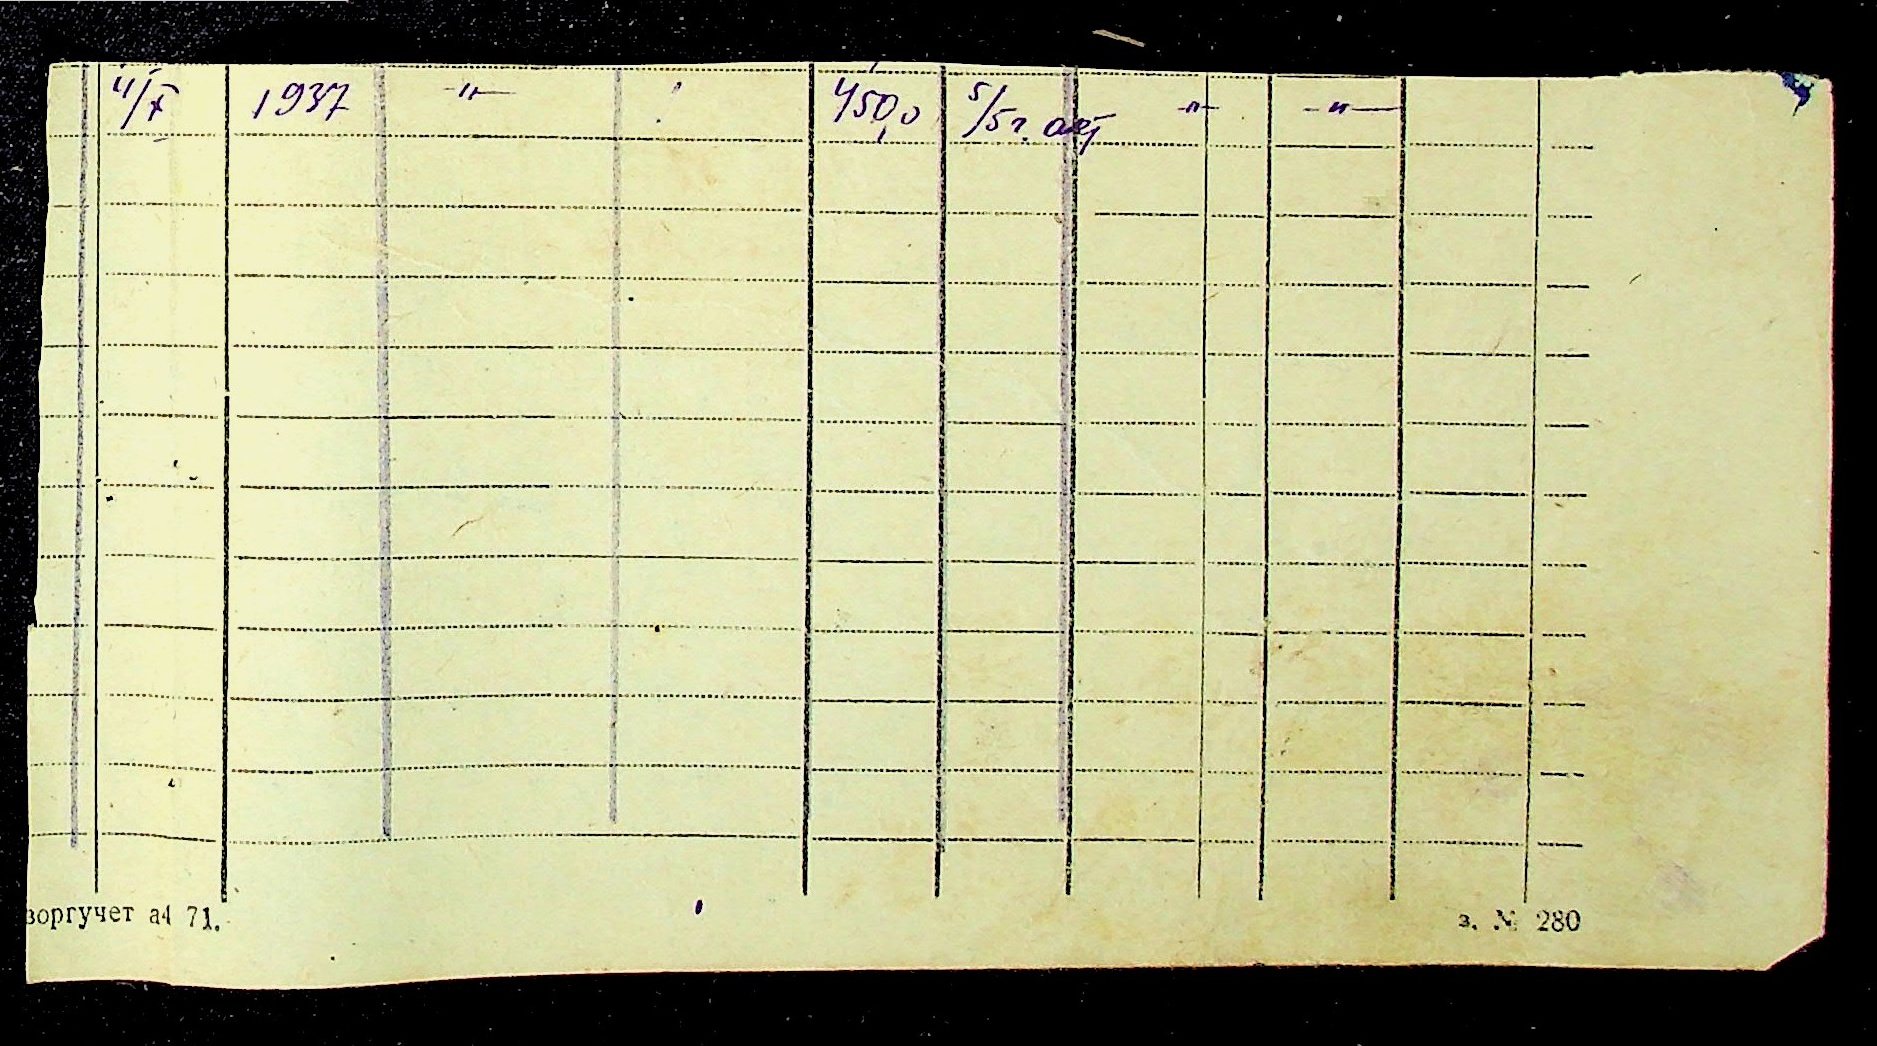 4/X 1937 -"- 4500 5/5 г. -"- -"-
воргучет а4 71. з. № 280